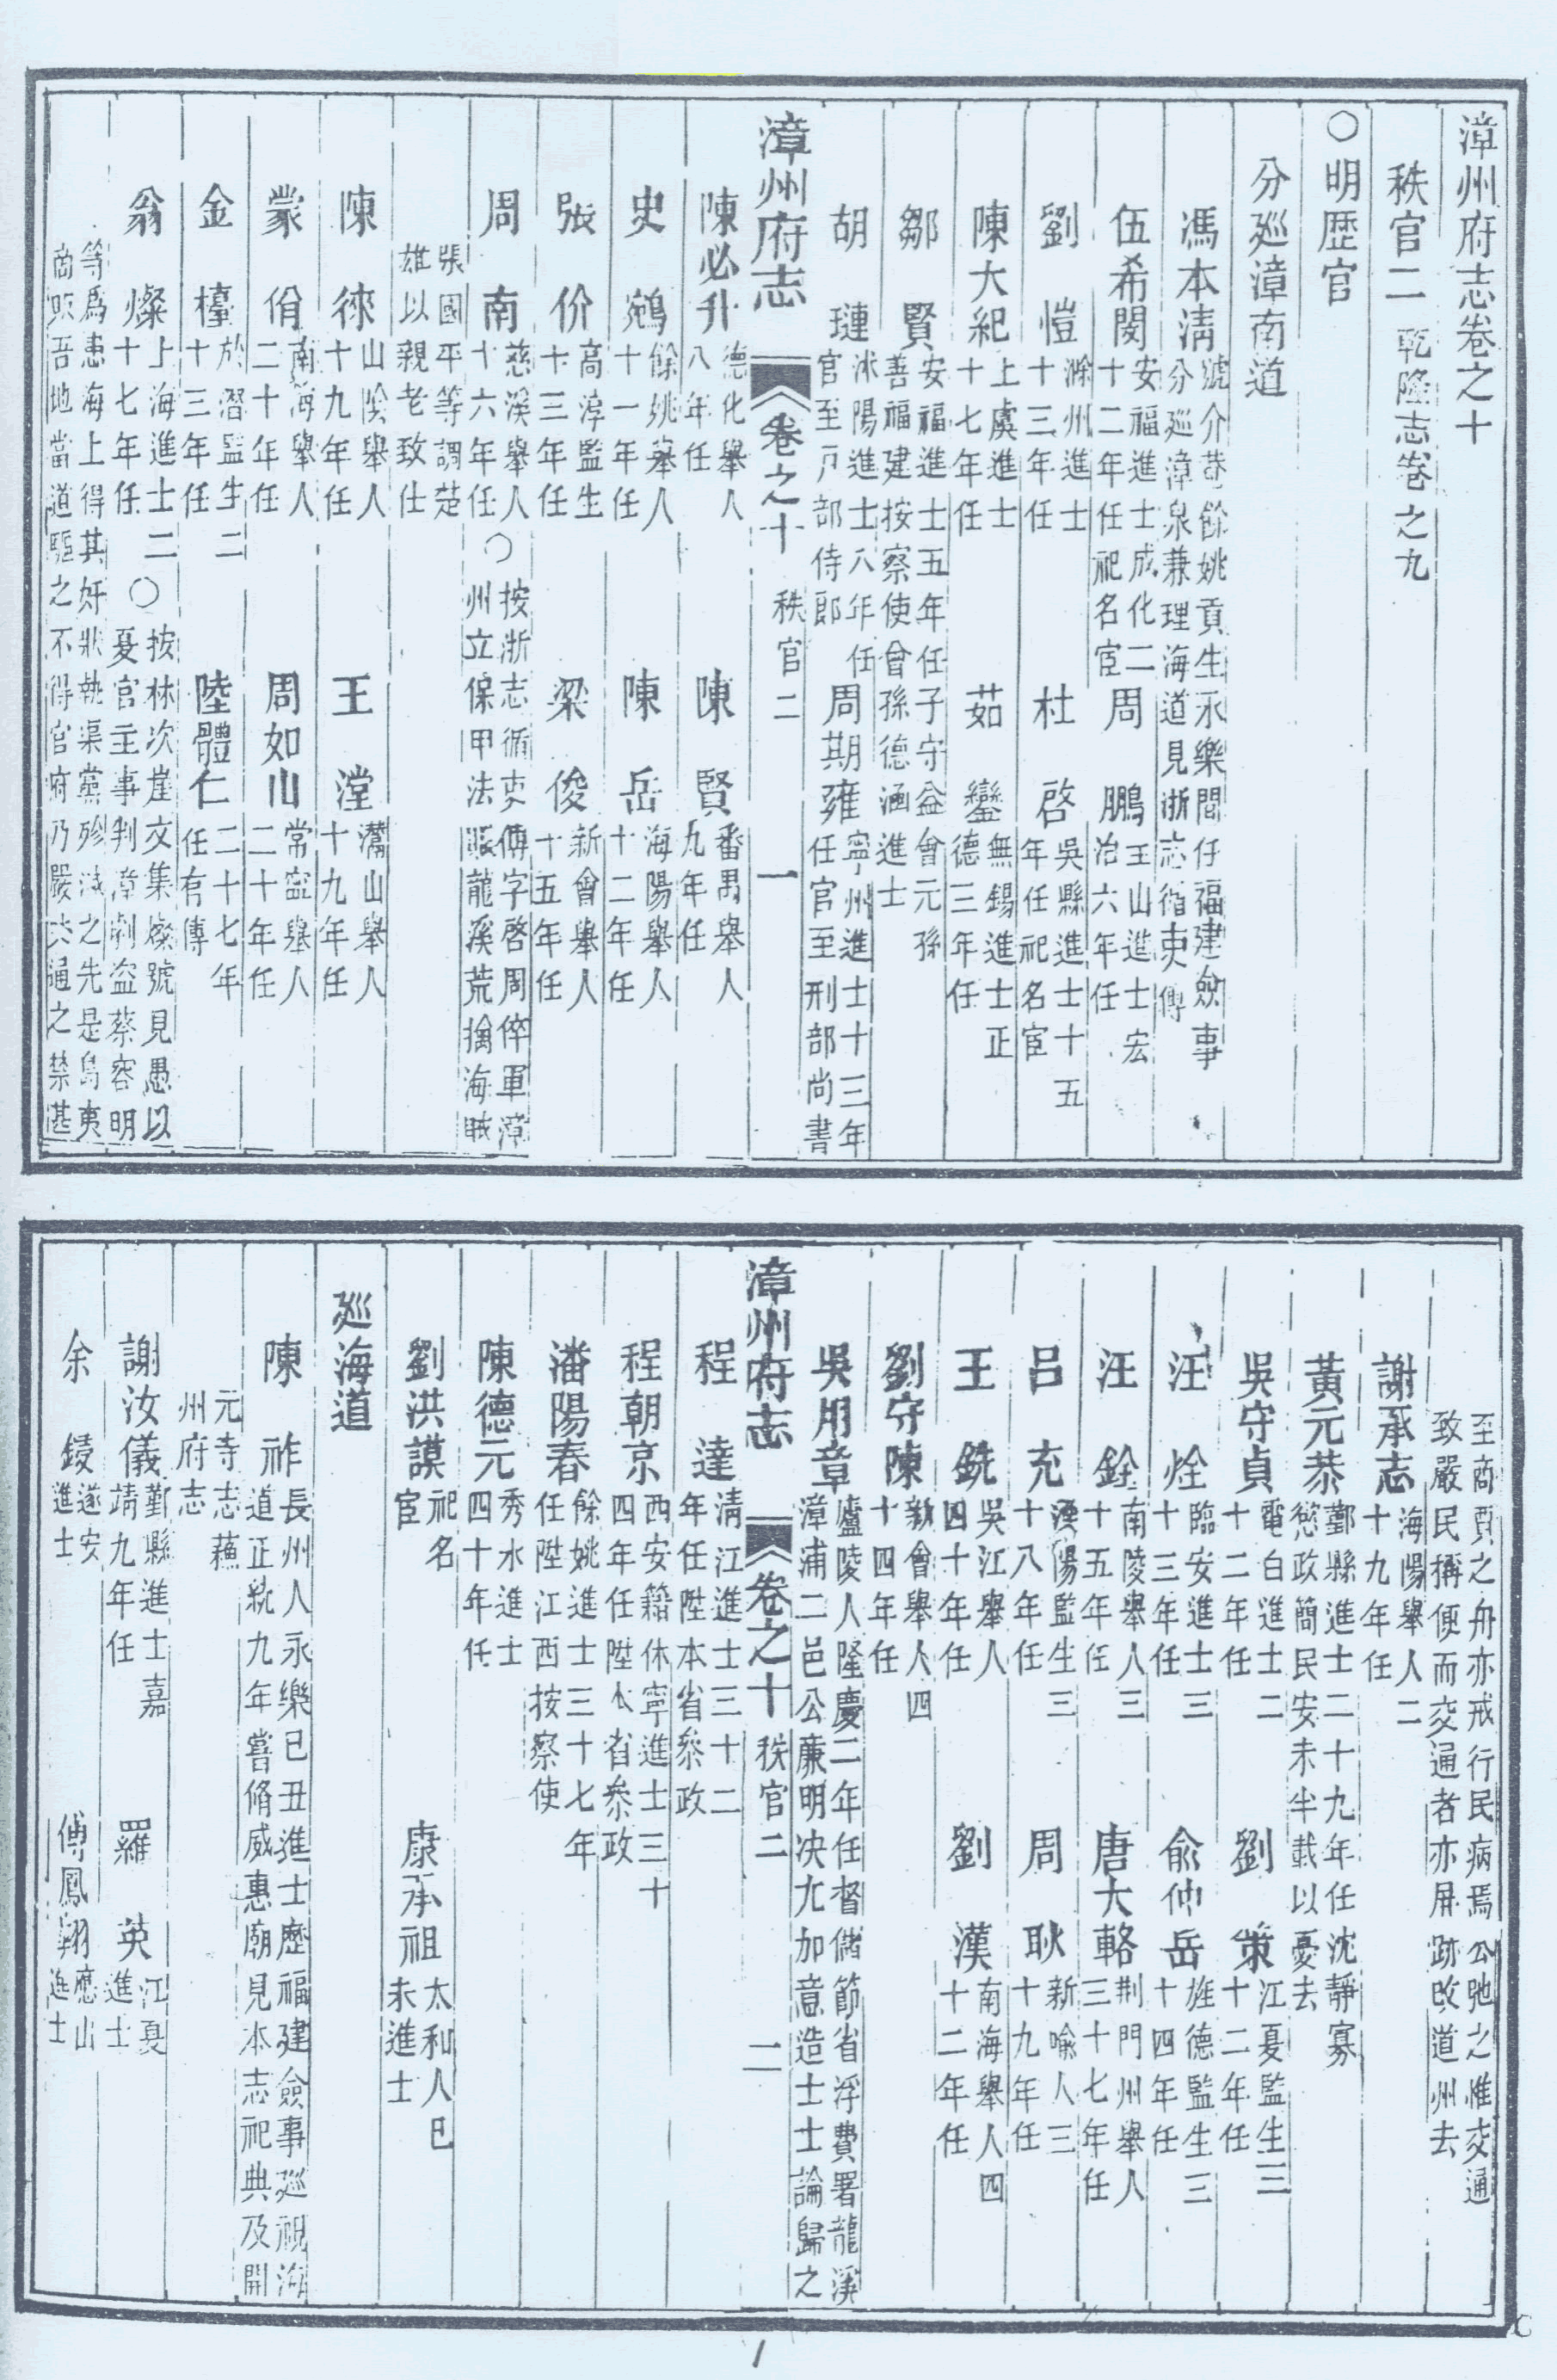 漳州府志卷之十
秩官二 乾隆志卷之九
○明歷官
分廵漳南道
馮本淸 號介菴餘姚貢生永樂間任福建僉事
分巡漳泉兼理海道見浙志循吏傳
伍希閔 安福進士成化二
十二年任祀名宦
周鵬 玉山進士宏
治六年任
劉愷 滁州進士
十三年任
杜啓 吳縣進士十五
年任祀名宦
陳大紀 上虞進士
十七年任
茹鑾 無錫進士正
德三年任
鄒賢 安福進士五年任子守益會元孫
善福建按察使曾孫德涵進士
胡璉 沭陽進士八年任
官至戸部侍郎
周期雍 寧州進士十三年
任官至刑部尚書
漳州府志 卷之十 秩官二 一
陳必升 德化舉人
八年任
陳賢 番禺舉人
九年任
史鵷 餘姚舉人
十一年任
陳岳 海陽舉人
十二年任
張价 高淳監生
十三年任
梁俊 新會舉人
十五年任
周南 慈溪舉人
十六年任
○按浙志循吏傳字啓周倅軍漳
州立保甲法賑龍溪荒擒海賊
張國平等調楚
雄以親老致仕
陳徠 山陰舉人
十九年任
王瀅 灊山舉人
十九年任
蒙佾 南海舉人
二十年任
周如山 常寧舉人
二十年任
金檯 於潛監生二
十三年任
陸體仁 二十七年
任有傳
翁燦 上海進士二
十七年任
○按林次崖文集燦號見愚以
夏官主事判漳劇盜蔡容明
等爲患海上得其奸狀執渠黨殄滅之先是島夷
商販吾地當道驅之不得官府乃嚴共通之禁甚
至商賈之舟亦戒行民病焉公弛之惟交通
致嚴民稱便而交通者亦屏跡改道州去
謝承志 海陽舉人二
十九年任
黃元恭 鄞縣進士二十九年任沈靜寡
慾政簡民安未半載以憂去
吳守貞 電白進士二
十二年任
劉策 江夏監生三
十二年任
汪烇 臨安進士三
十三年任
俞仲岳 旌德監生三
十四年任
汪銓 南陵舉人三
十五年任
唐大輅 荆門州舉人
三十七年任
呂充 溧陽監生三
十八年任
周耿 新喻人三
十九年任
王銑 吳江舉人
四十年任
劉漢 南海舉人四
十二年任
劉守陳 新會舉人四
十四年任
吳用章 廬陵人隆慶二年任督儲節省浮費署龍溪
漳浦二邑公廉明决尤加意造士士論歸之
漳州府志 卷之十 秩官二 二
程達 淸江進士三十二
年任陞本省叅政
程朝京 西安籍休寧進士三十
四年任陞本省叅政
潘陽春 餘姚進士三十七年
任陞江西按察使
陳德元 秀水進士
四十年任
劉洪謨 祀名
宦
康承祖 太和人已
未進士
廵海道
陳祚 長州人永樂已丑進士歷福建僉事廵視海
道正統九年嘗脩威惠廟見本志祀典及開
元寺志蘓
州府志
謝汝儀 鄞縣進士嘉
靖九年任
羅英 江夏
進士
余鋑 遂安
進士
傅鳳翔 應山
進士